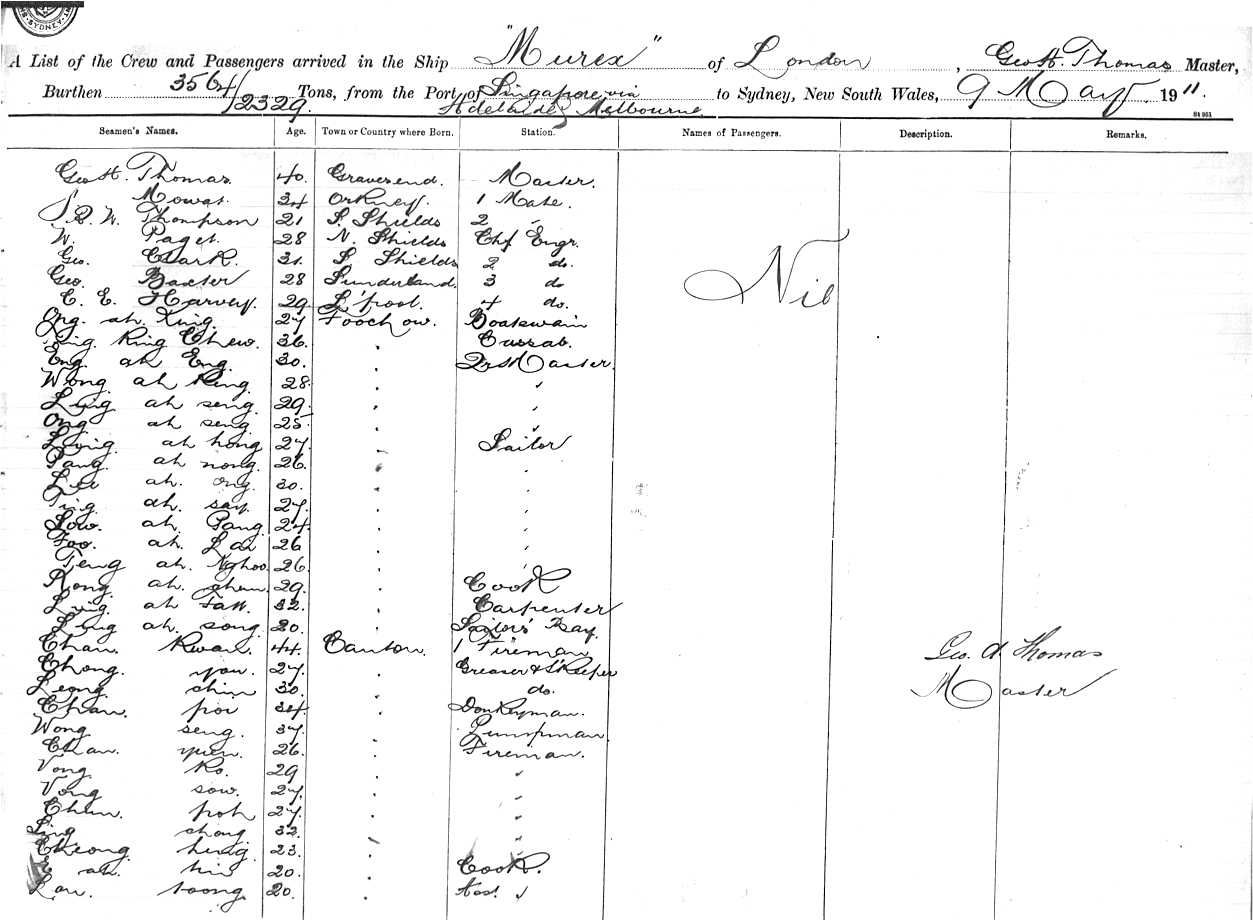 SYDNEY
A List of the Crew and Passengers arrived in the Ship "Murex" of London, Geo H. Thomas Master,
Burthen 3564/2329 Tons, from the Port of Singapore via Adelaide & Melbourne to Sydney, New South Wales, 9 May 1911.
Seamen's Names. Age. Town or Country where Born. Station. Names of Passengers. Description. Remarks.
Geo H. Thomas. 40. Gravesend. Master.
J. Mowat. 34 Orkney. 1 Mate.
J. R. W. Thompson 21 S. Shields 2 "
W. Paget. 28 N. Shields Chf Engr.
Geo. Clark. 31. S. Shields 2 do.
Geo. Baxter 28 Sunderland. 3 do
Nil
C. E. Harvey. 29. L'pool. 4 do.
Ong. ah. King. 27 Foochow. Boatswain
Ling King Chew. 36. " Cassab.
Eng. ah Eng. 30. " Qr Master.
Wong ah King. 28. " "
Ling ah seng. 29. " "
Ong ah seng. 25. " "
Ling. ah hong 27. " Sailor
Pang. ah nong. 26. " "
Lee ah. ong. 30. " "
Ting ah. say. 27. " "
Low. ah. Pang. 24. " "
Foo. ah. Lai 26 " "
Teng ah. Nghoo. 26. " "
Kong. ah. 29. " Cook
Ling. ah 32. " Carpenter
Ling ah. song. 20. " Sailors' Bay.
Chan. Kwan. 44. Canton. 1 Fireman
Geo. H Thomas
Chong. you. 27. " Greaser & S'Keeper
Leong. chin 30. " do.
Master
Chan. poi 34. " Donkeyman.
Wong seng. 37. " Pumpman.
Chan. yuen. 26. " Fireman.
Vong Ko. 29 " "
Vong sow. 27. " "
Chun. poh 27. " "
Ling chong 32. " "
Cheong hing. 23. " "
ah. hin 20. " Cook.
Lau. toong. 20. " Asst. "